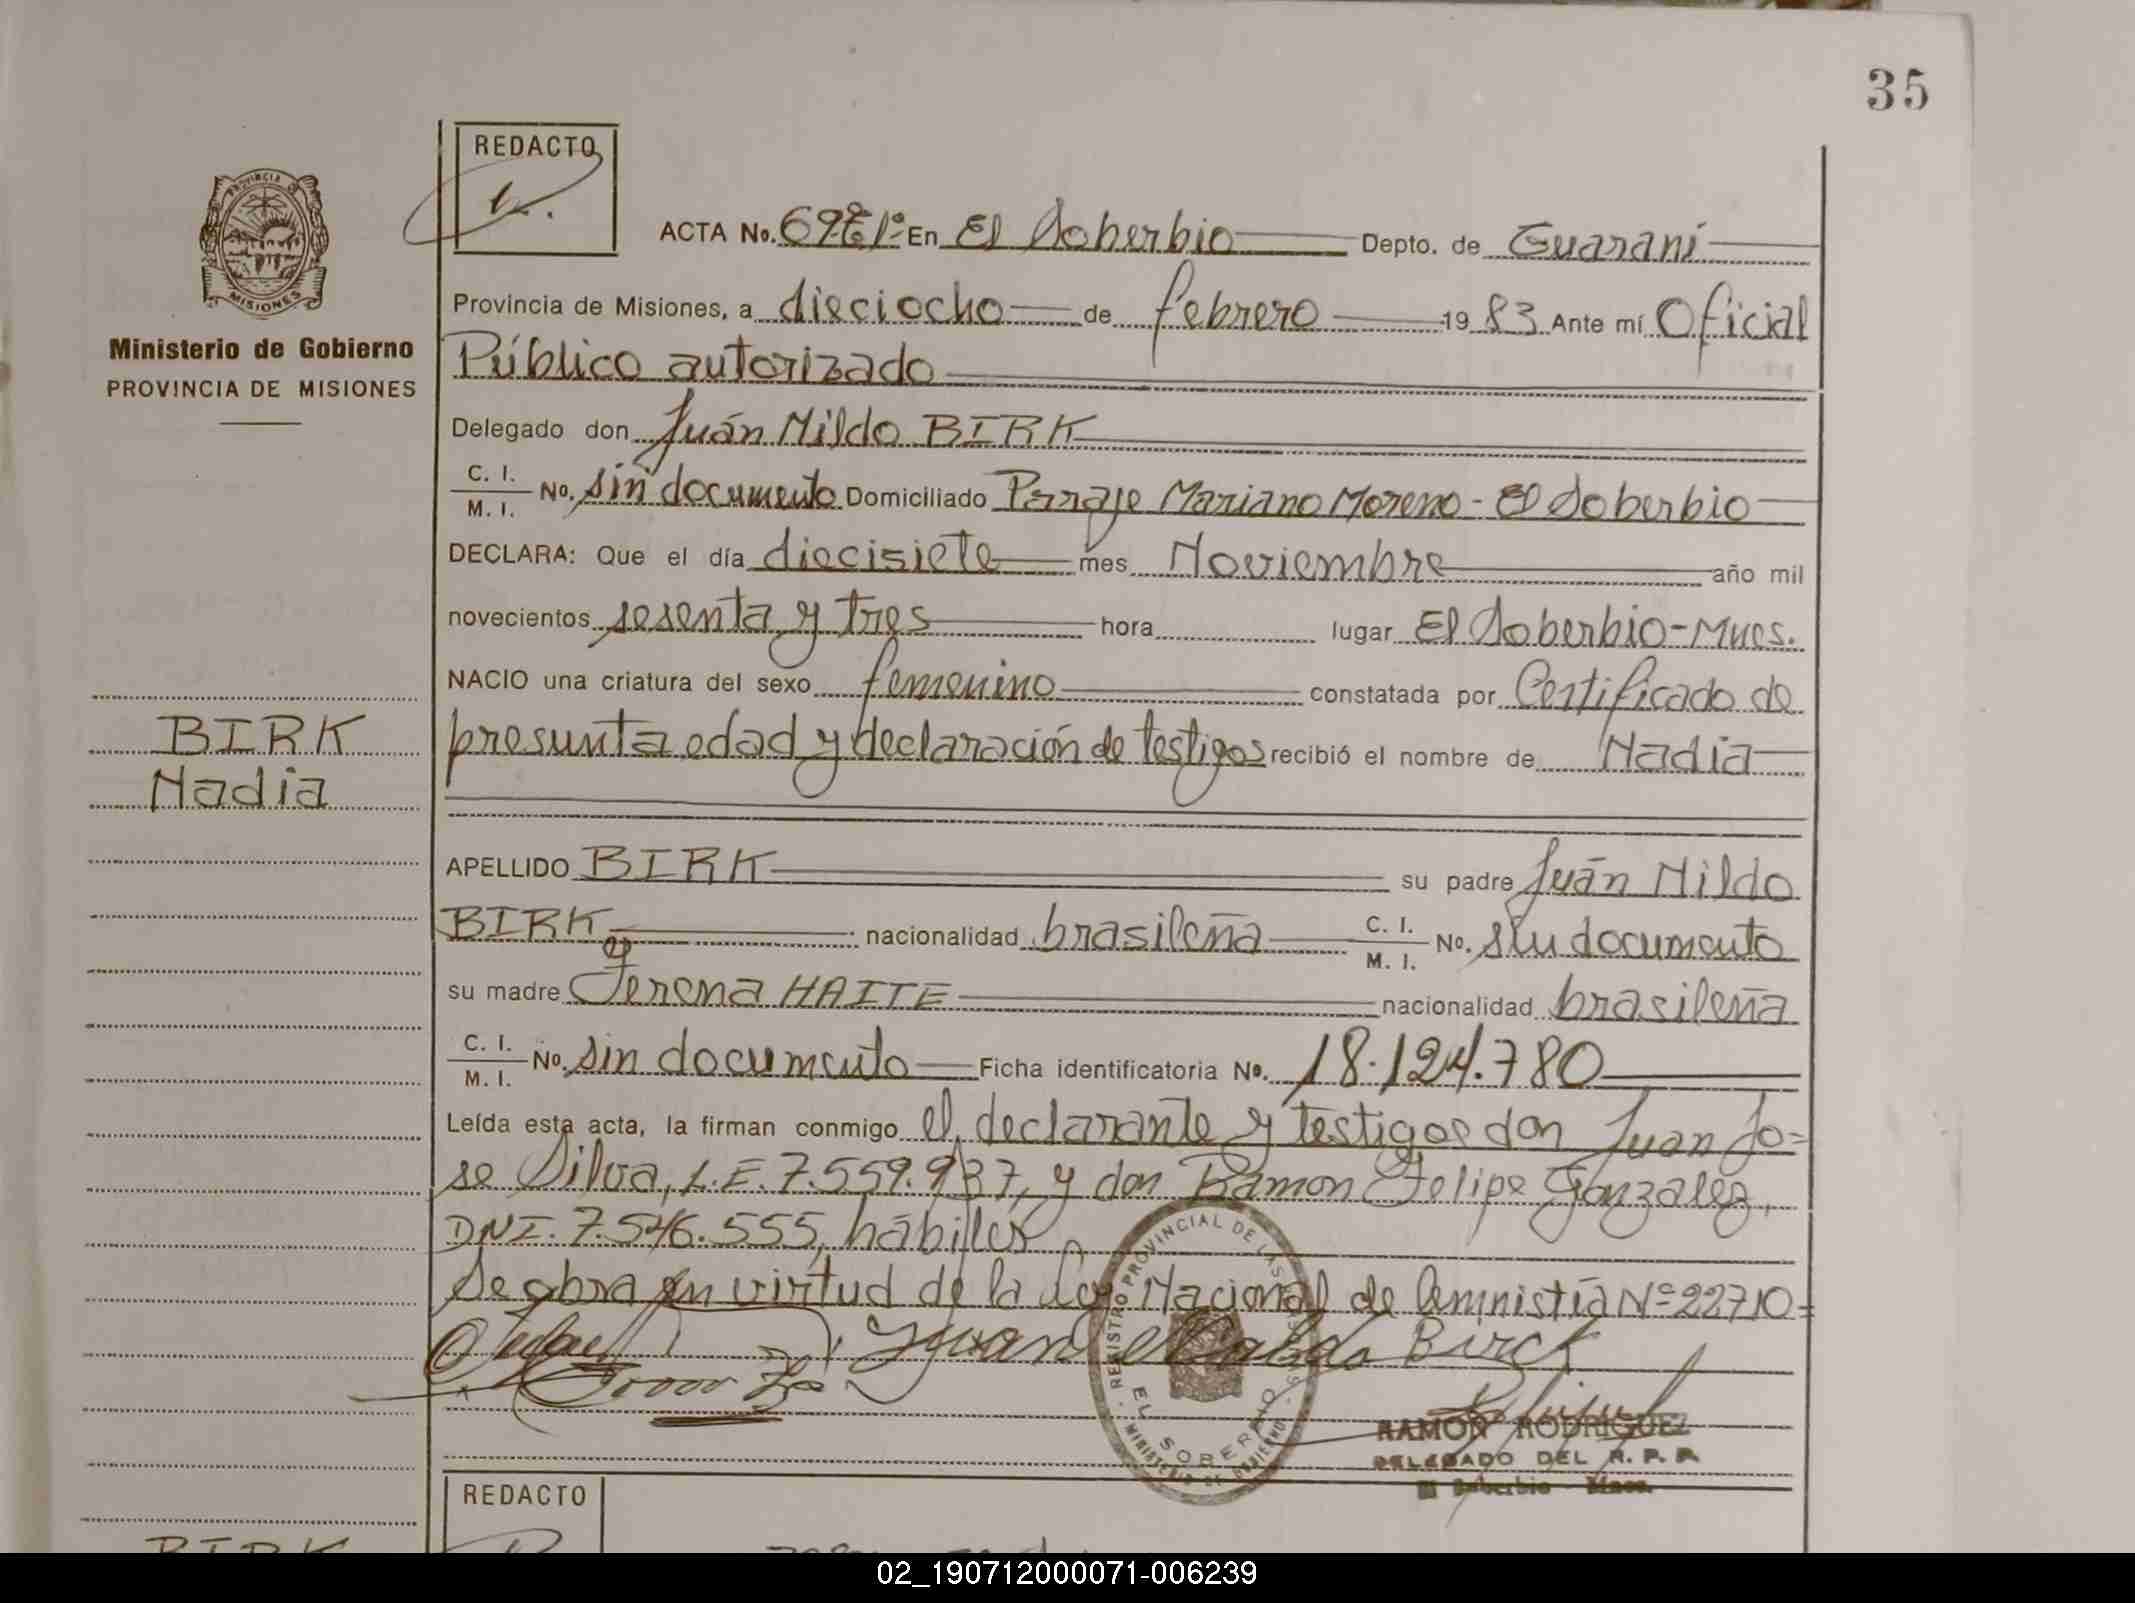 35
REDACTO
PROVINCIA
MISIONES
Ministerio de Gobierno
PROVINCIA DE MISIONES
ACTA No. 69 En El Soberbio Depto. de Guaraní
Provincia de Misiones, a dieciocho de febrero 1983 Ante mí Oficial
Público autorizado
Delegado don Juán Nildo BIRK
C. I. M. I. No. sin documento Domiciliado Paraje Mariano Moreno - El Soberbio
DECLARA: Que el día diecisiete mes Noviembre año mil
novecientos sesenta y tres hora lugar El Soberbio-Mnes.
NACIO una criatura del sexo femenino constatada por Certificado de
presunta edad y declaración de testigos recibió el nombre de Nadia
BIRK
Nadia
APELLIDO BIRK su padre Juán Nildo
BIRK nacionalidad brasileña C. I. M. I. No. sin documento
su madre HAITE nacionalidad brasileña
C. I. M. I. No. sin documento Ficha identificatoria No. 18.124.780
Leída esta acta, la firman conmigo el declarante y testigos don Juan Jo=
se Silva, L.E. 7.559.937, y don Ramon Felipe Gonzalez,
DNI. 7.546.555, hábiles
Se obra en virtud de la Ley Nacional de Amnistía Nº 22710=
Juan Birck
REGISTRO PROVINCIAL DE LAS
EL SOBERBIO
MINISTERIO DE GOBIERNO
RAMON RODRIGUEZ
DELEGADO DEL R. P. P.
El Soberbio - Mnes.
REDACTO
BIRK
02_190712000071-006239